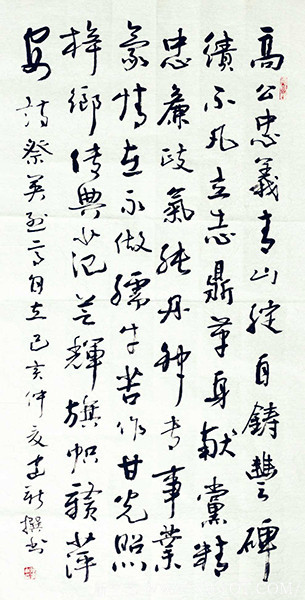 高公忠義青山綻自鑄豐碑
績不凡立志鼎革身献黨精
忠廉政氣純丹神事業
豪情在亦做孺牛苦作甘光照
梓鄉传典范輝旗幟贛萍
安 詩祭英烈高自立 己亥仲夏建新撰书